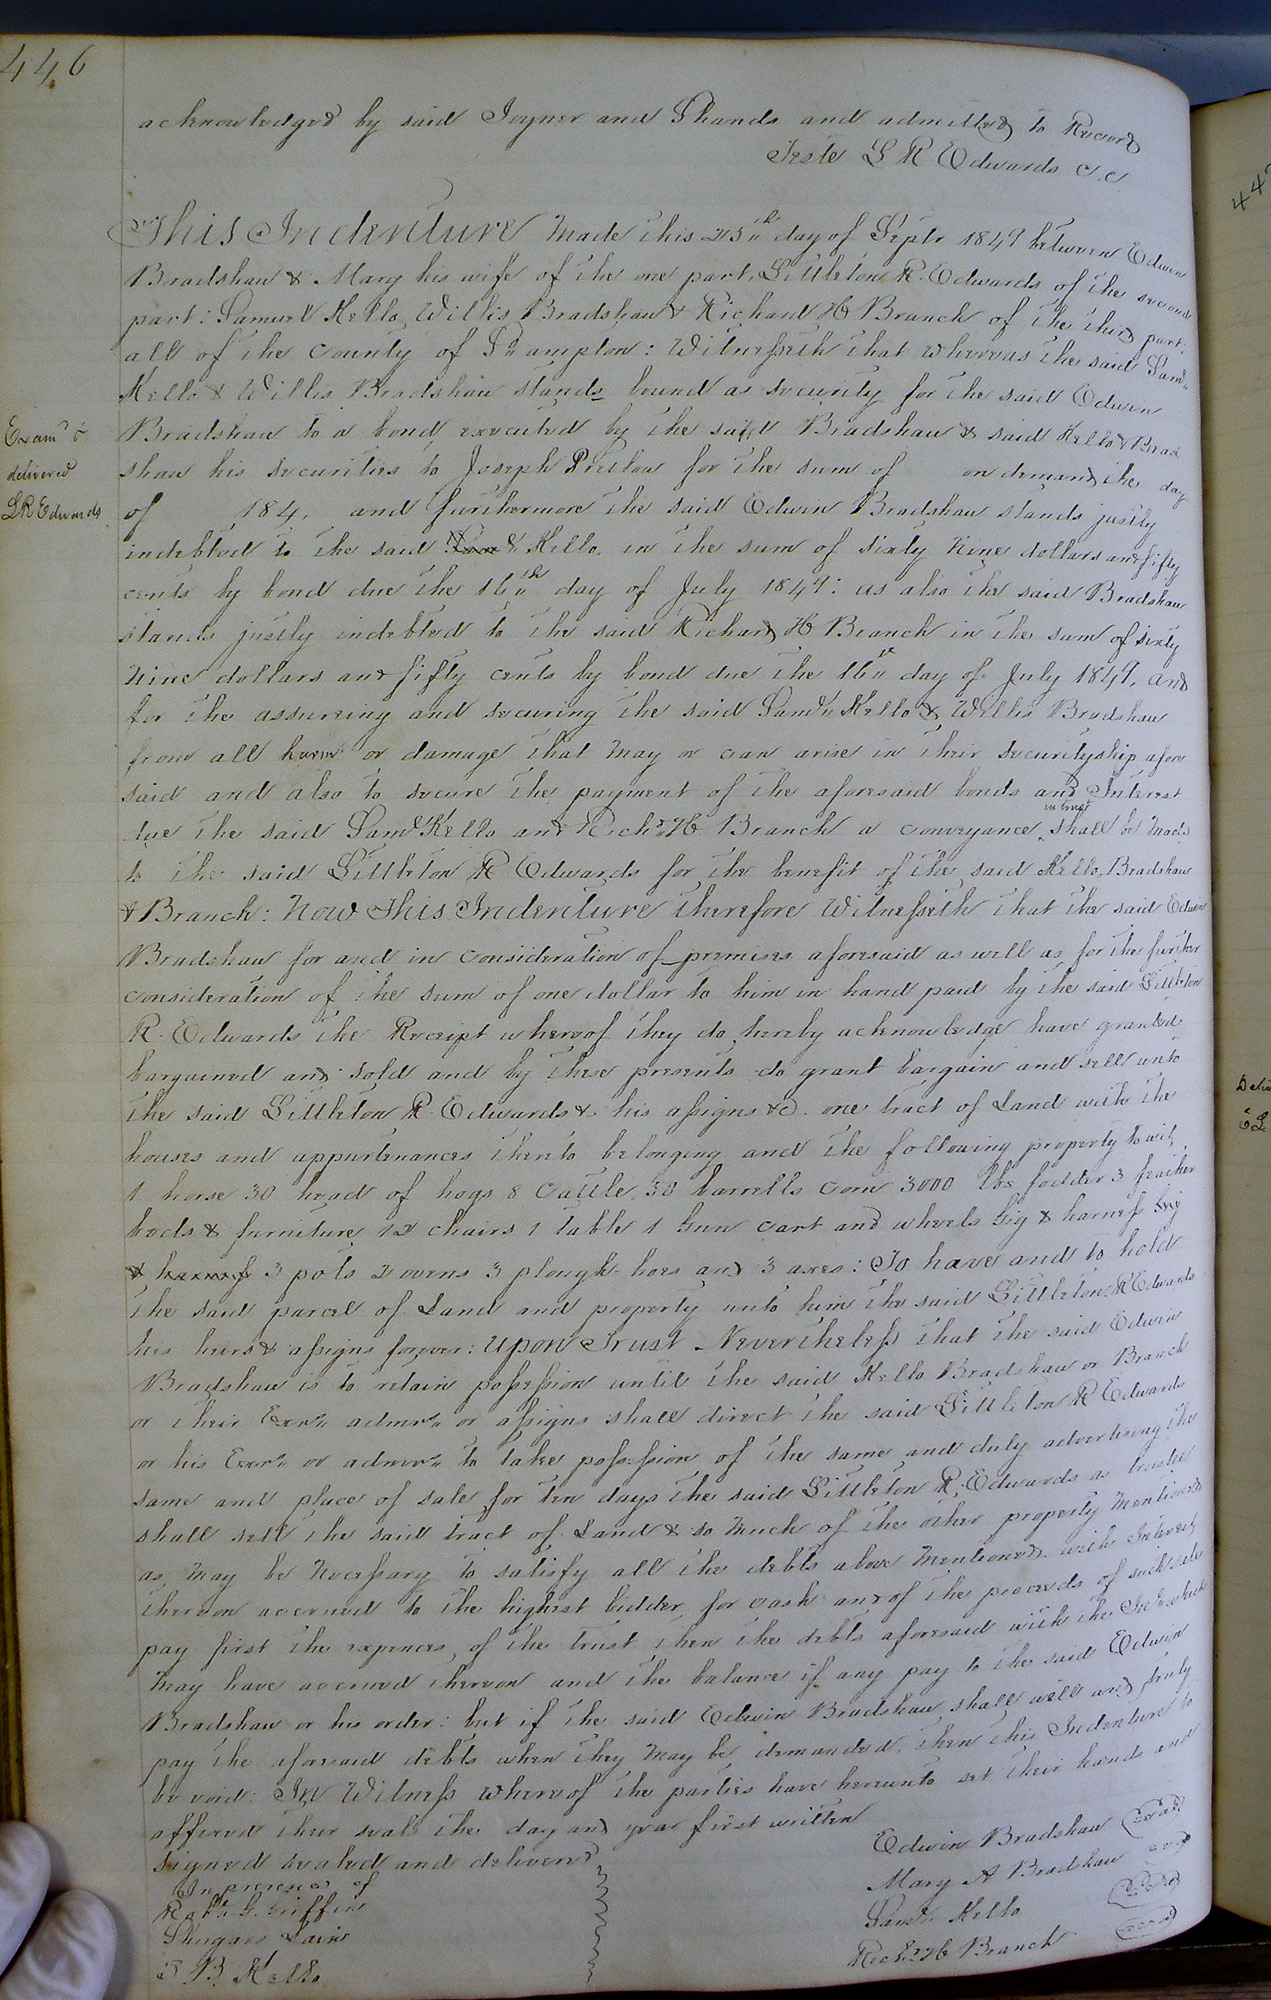 446
acknowledged by said Joyner and Shands and admitted to Record
Teste L R Edwards C.C.
This Indenture Made this 25th day of Septr 1849 between Edwin
Bradshaw & Mary his wife of the one part, Littleton R. Edwards of the second
part: Samuel Kello, Willis Bradshaw & Richard H Branch of the third part.
all of the county of S°ampton: Witnesseth that whereas the said Saml
Kello & Willis Bradshaw stands bound as security for the said Edwin
Bradshaw to a bond executed by the said Bradshaw & said Kello & Brad
shaw his securities to Joseph Pretlow for the sum of on demand the day
of 184 . and furthermore the said Edwin Bradshaw stands justly
indebted to the said Kello, in the sum of sixty Nine dollars and fifty
cents by bond due the 16th day of July 1849: as also the said Bradshaw
stands justly indebted to the said Richard H Branch in the sum of sixty
Nine dollars and fifty cents by bond due the 16th day of July 1849, and
for the assureing and securing the said Saml Kello & Willis Bradshaw
from all harm or damage that May or can arise in their securityship afore
said and also to secure the payment of the aforesaid bonds and Interest
due the said Saml Kello and Richd H Branch a conveyance in trust shall be Made
to the said Littleton R Edwards for the benefit of the said Kello, Bradshaw
& Branch: Now This Indenture therefore Witnesseth that the said Edwin
Bradshaw for and in consideration of premises aforesaid as well as for the further
consideration of the sum of one dollar to him in hand paid by the said Littleton
R. Edwards the Receipt whereof they do hereby acknowledge have granted
bargained and sold and by these presents do grant bargain and sell unto
the said Littleton R Edwards & his assigns &c. one tract of Land with the
houses and appurtenances thereto belonging and the following property to wit,
1 horse 30 head of hogs 8 Cattle, 30 barrells corn 3000 lbs fodder 3 feather
beds & furniture 12 chairs 1 table 1 Gun cart and wheels Gig & harness Gig
& harness 3 pots 2 ovens 3 plough hoes and 3 axes: To have and to hold
the said parcel of Land and property unto him the said Littleton R Edwards
his heirs & assigns forever: Upon Trust Nevertheless that the said Edwin
Bradshaw is to retain possession until the said Kello Bradshaw or Branch
or their Exrs admrs or assigns shall direct the said Littleton R Edwards
or his Exrs or admrs to take possession of the same and duly advertising the
same and place of sale for ten days the said Littleton R. Edwards as trustee
shall sell the said tract of Land & so Much of the other property Mentioned
as May be Necessary to satisfy all the debts above Mentioned with Interest
thereon accrued to the highest bidder for cash and of the proceeds of such sale
pay first the expences of the trust then the debts aforesaid with the Int which
May have accrued thereon and the balance if any pay to the said Edwin
Bradshaw or his order: but if the said Edwin Bradshaw shall well and truly
pay the aforesaid debts when they May be demanded. then this Indenture to
be void: In Witness whereof the parties have hereunto set their hands and
affixed their seals the day and year first written
Signed sealed and delivered
In presence of
Robt. G. Griffin
Shugars Lain
S. B. Kello
Edwin Bradshaw (seal)
Mary A Bradshaw seal
Saml Kello (seal)
Richd H Branch (seal)
Examd &
delivered
LR Edwards